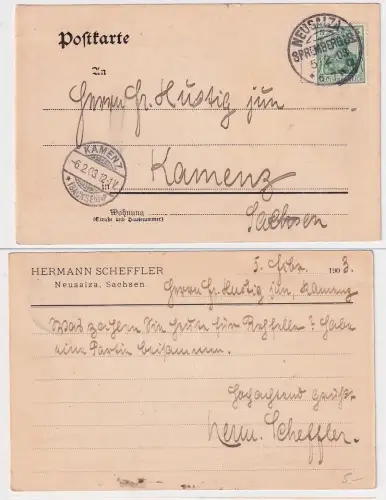 Postkarte
NEUSALZA-
SPREMBERG
5/2 03
An
Herrn Fr. Hustig jun
Kamenz
KAMENZ
-6.2.03.12-1V.
*(SACHSEN)*
in
Wohnung
(Straße und Hausnummer)
Sachsen
HERMANN SCHEFFLER
Neusalza, Sachsen.
5. Febr. 1903.
Herrn Fr. Hustig jun, Kamenz
Was zahlen Sie heute für Rehfelle? Habe
eine Partie beisammen.
Hochachtend grüßt
Herm. Scheffler.
5.-